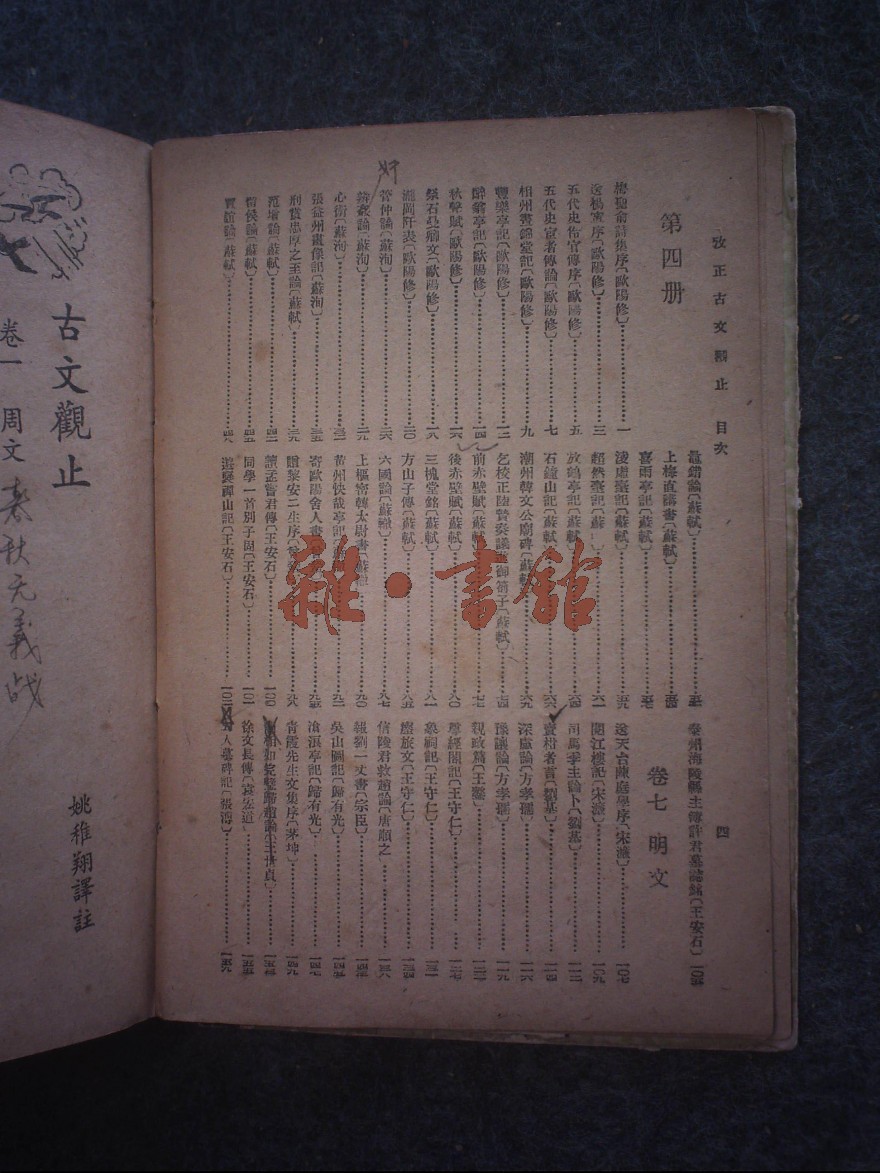 攷正古文觀止 目次
四
第四册
梅聖俞詩集序〔歐陽修〕一
送楊寘序〔歐陽修〕三
五代史伶官傳序〔歐陽修〕五
五代史宦者傳論〔歐陽修〕七
相州晝錦堂記〔歐陽修〕九
豐樂亭記〔歐陽修〕一二
醉翁亭記〔歐陽修〕一四
秋聲賦〔歐陽修〕一六
祭石曼卿文〔歐陽修〕一八
瀧岡阡表〔歐陽修〕二〇
管仲論〔蘇洵〕
辨姦論〔蘇洵〕二九
心術〔蘇洵〕
張益州畫像記〔蘇洵〕三五
刑賞忠厚之至論〔蘇軾〕三九
范增論〔蘇軾〕
留侯論〔蘇軾〕四五
賈誼論〔蘇軾〕
好
鼂錯論〔蘇軾〕
上梅直講書〔蘇軾〕
喜雨亭記〔蘇軾〕五七
凌虛臺記〔蘇軾〕五九
超然臺記〔蘇 六一
放鶴亭記〔蘇軾〕六四
石鐘山記〔蘇軾〕六六
潮州韓文公廟碑〔蘇軾〕六九
乞校正陸贄奏議 御箚子〔蘇軾〕七四
前赤壁賦〔蘇軾〕七七
後赤壁賦〔蘇軾〕八〇
三槐堂銘〔蘇軾〕八一
方山子傳〔蘇軾〕八五
六國論〔蘇轍〕八七
上樞密韓太尉書〔蘇轍 九〇
黃州快哉亭記 九二
寄歐陽舍人書 九五
贈黎安二生序 九八
讀孟嘗君傳〔王安石〕一〇〇
同學一首別子固〔王安石〕一〇一
遊褒禪山記〔王安石〕一〇二
泰州海陵縣主簿許君墓誌銘〔王安石〕一〇五
卷七 明文
送天台陳庭學序〔宋濂〕一〇七
閱江樓記〔宋濂〕一〇九
司馬季主論卜〔劉基〕一一二
賣柑者言〔劉基〕一一四
深慮論〔方孝孺〕一一六
豫讓論〔方孝孺〕一一九
親政篇〔王鏊〕
尊經閣記〔王守仁〕一二七
象祠記〔王守仁〕一三一
瘞旅文〔王守仁〕一三四
信陵君救趙論〔唐順之〕
報劉一丈書〔宗臣〕
吳山圖記〔歸有光〕一四五
滄浪亭記〔歸有光〕一四七
青霞先生文集序〔茅坤〕一四九
藺相如完璧歸趙論〔王世貞〕
徐文長傳〔袁宏道〕一五五
五人墓碑記〔張溥〕一五九
古文觀止
卷一 周文
春秋无義战
姚稚翔譯註
雜·書館